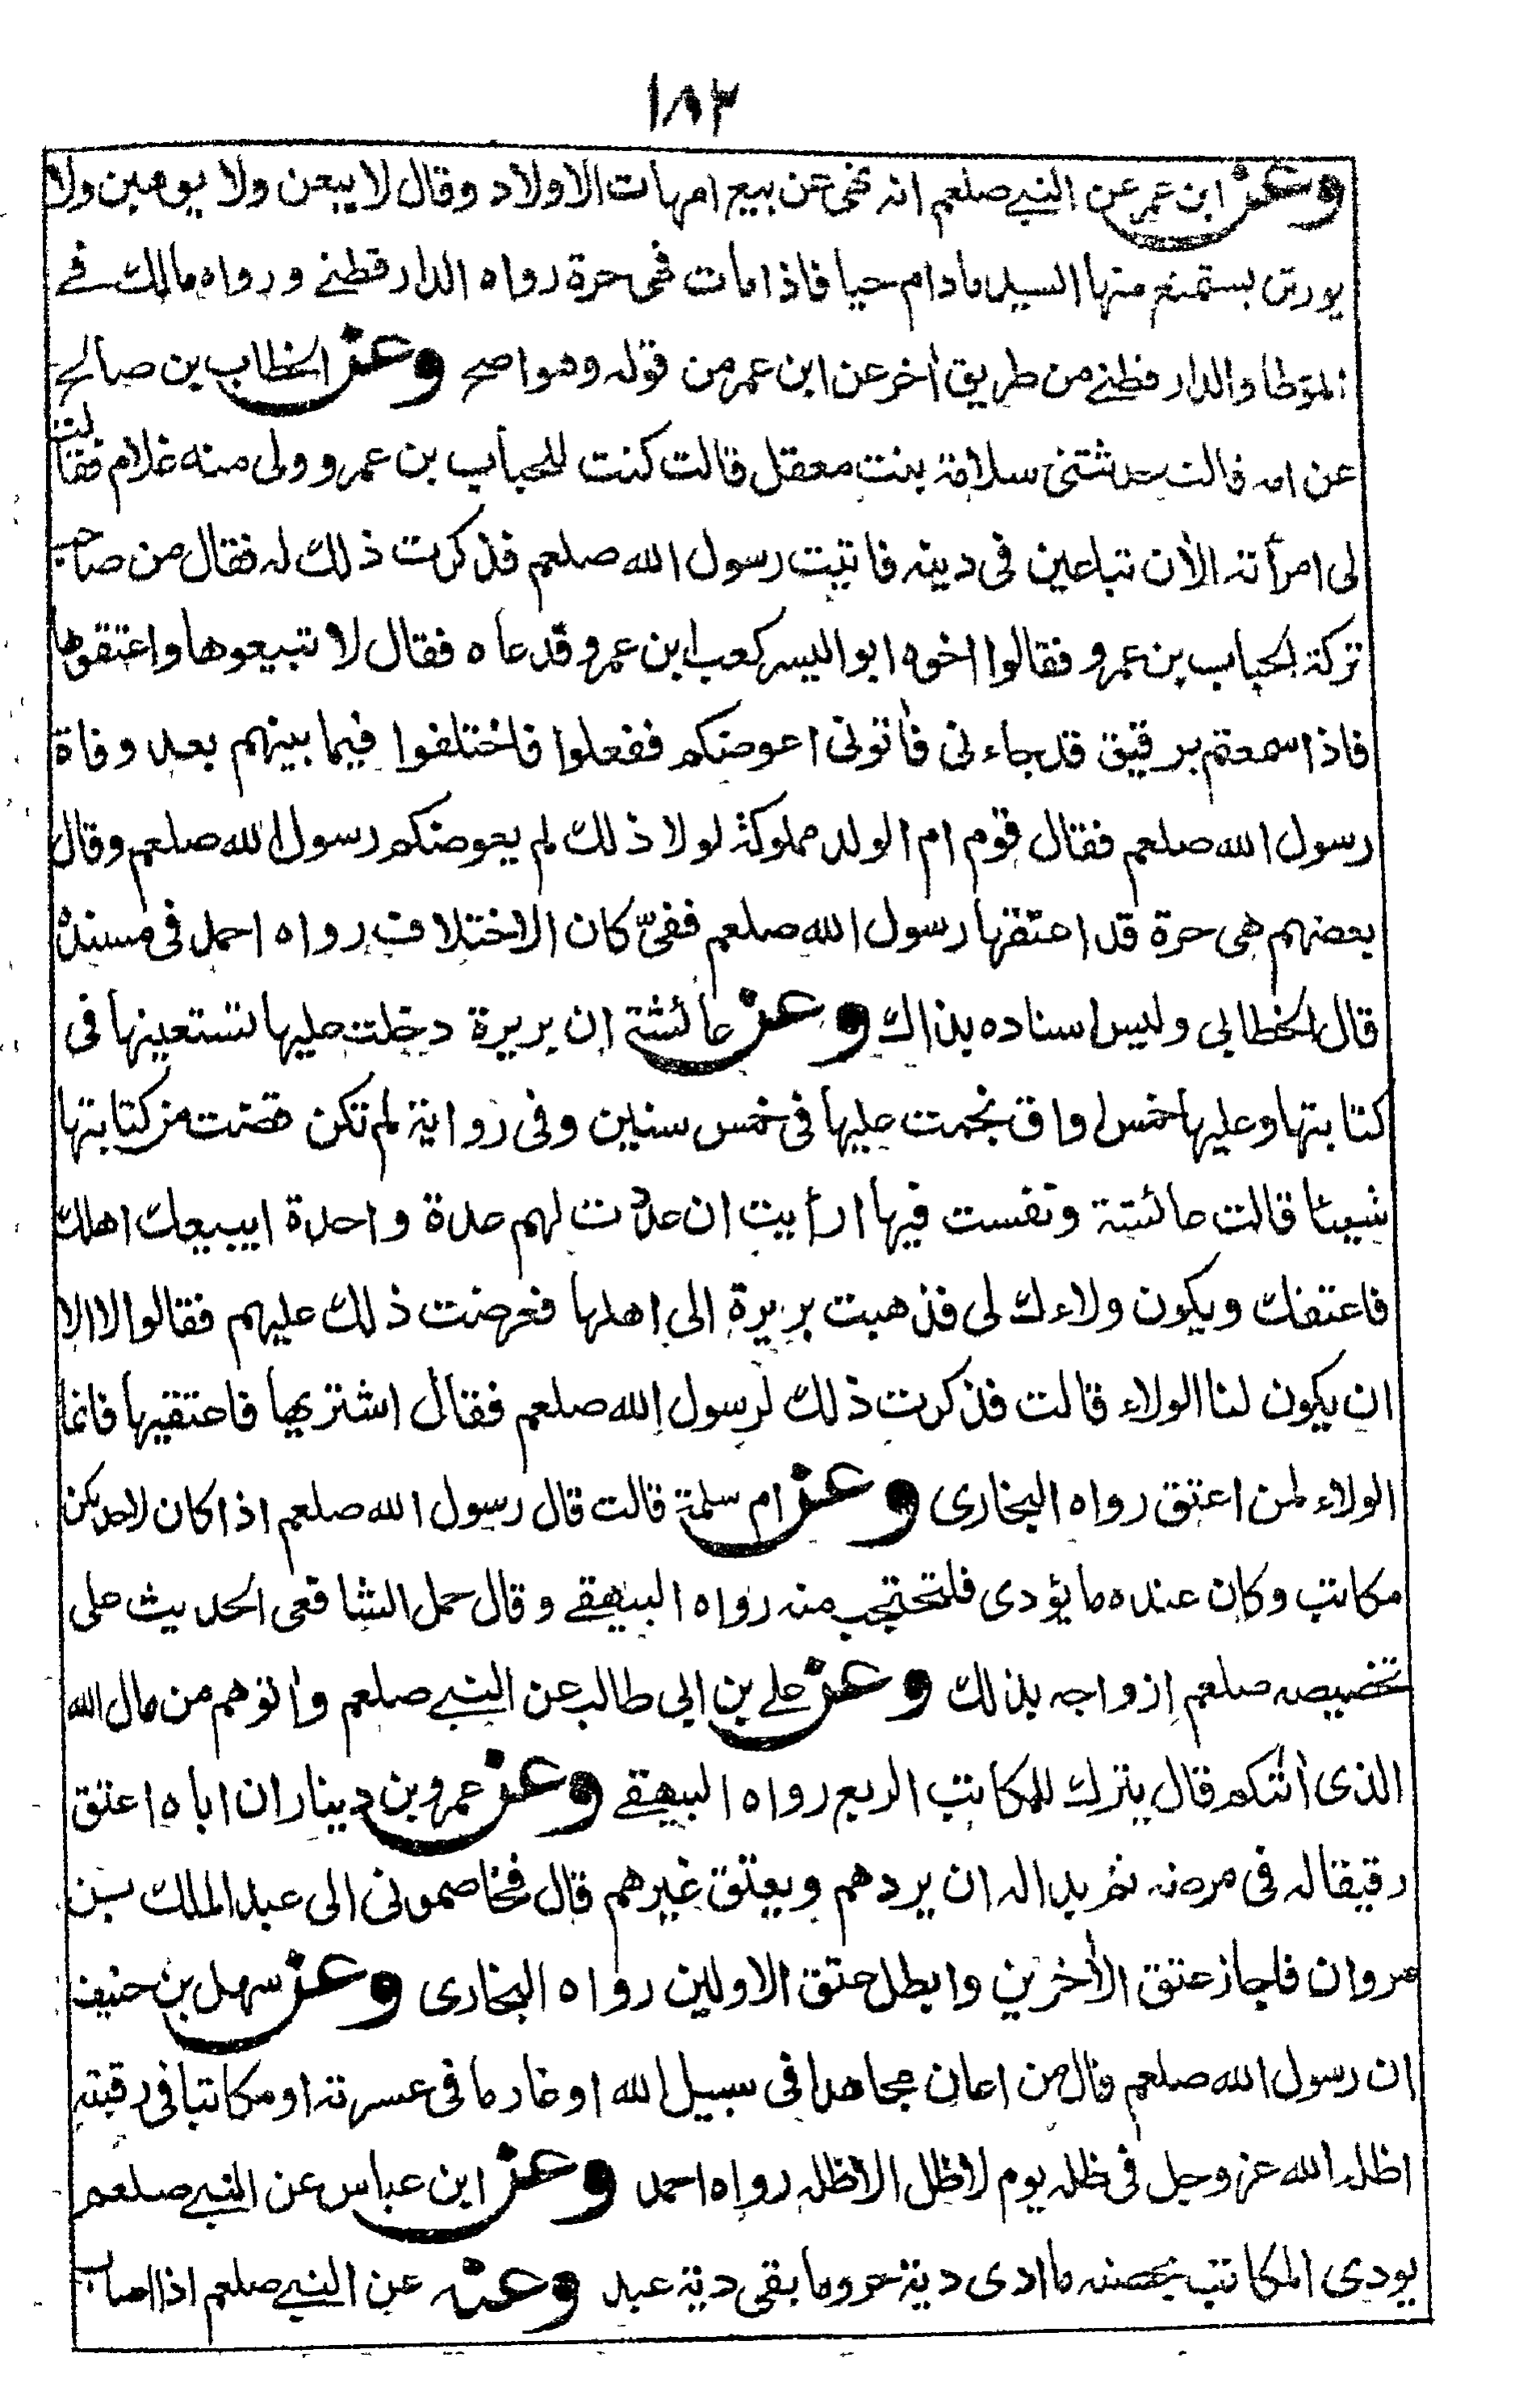 ١٨٣
وعن ابن عمر عن النبي صلعم انه نهى عن بيع امهات الاولاد وقال لا يبعن ولا يوهبن ولا
يورثن يستمتع منها السيد ما دام حيا فاذا مات فهى حرة رواه الدارقطنے ورواه مالك فے
الموطا والدارقطنے من طريق أخر عن ابن عمر من قوله وهو اصح وعن الخطاب بن صالح
عن امه قالت حدثتنى سلامة بنت معقل قالت كنت للحباب بن عمرو ولى منه غلام فقالت
لى امرأته الأن تباعين فى دينه فاتيت رسول الله صلعم فذكرت ذلك له فقال من صاحب
تركة الحباب بن عمرو فقالوا اخوه ابو اليسر كعب ابن عمرو فدعاه فقال لا تبيعوها واعتقوها
فاذا سمعتم برقيق قد جاءنى فأتونى اعوضكم ففعلوا فاختلفوا فيما بينهم بعد وفاة
رسول الله صلعم فقال قوم ام الولد مملوكة لولا ذلك لم يعوضكم رسول الله صلعم وقال
بعضهم هى حرة قد اعتقها رسول الله صلعم ففىّ كان الاختلاف رواه احمد فى مسنده
قال الخطابي وليس اسناده بذاك وعن عائشة ان بريرة دخلت عليها تستعينها فى
كتابتها وعليها خمس اواق نجمت عليها فى خمس سنين وفى رواية لم تكن قضت من كتابتها
شيئا قالت عائشة ونفست فيها ارأيت ان عددت لهم عدة واحدة ايبيعك اهلك
فاعتقك ويكون ولاءك لى فذهبت بريرة الى اهلها فعرضت ذلك عليهم فقالوا لا الا
ان يكون لنا الولاء قالت فذكرت ذلك لرسول الله صلعم فقال اشتريها فاعتقيها فانما
الولاء لمن اعتق رواه البخارى وعن ام سلمة قالت قال رسول الله صلعم اذا كان لاحدىكن
مكاتب وكان عنده ما يؤدى فلتحتجب منه رواه البيهقے وقال حمل الشافعى الحديث على
تخصيصه صلعم ازواجه بذلك وعن علے بن ابي طالب عن النبے صلعم واتوهم من مال الله
الذى أتٰكم قال يترك للمكاتب الربع رواه البيهقے وعن عمرو بن دينار ان اباه اعتق
رقيقا له فى مرضه ثم بدا له ان يردهم ويعتق غيرهم قال فخاصمونى الى عبد الملك بن
مروان فاجاز عتق الأخرين وابطل عتق الاولين رواه البخارى وعن سهل بن حنيف
ان رسول الله صلعم قال من اعان مجاهدا فى سبيل الله او غارما فى عسرته او مكاتبا فى رقبته
اظله الله عز وجل فى ظله يوم لا ظل الا ظله رواه احمد وعن ابن عباس عن النبے صلعم
يودى المكاتب بحصته ما ادى دية حر وما بقى دية عبد وعنه عن النبے صلعم اذا اصاب